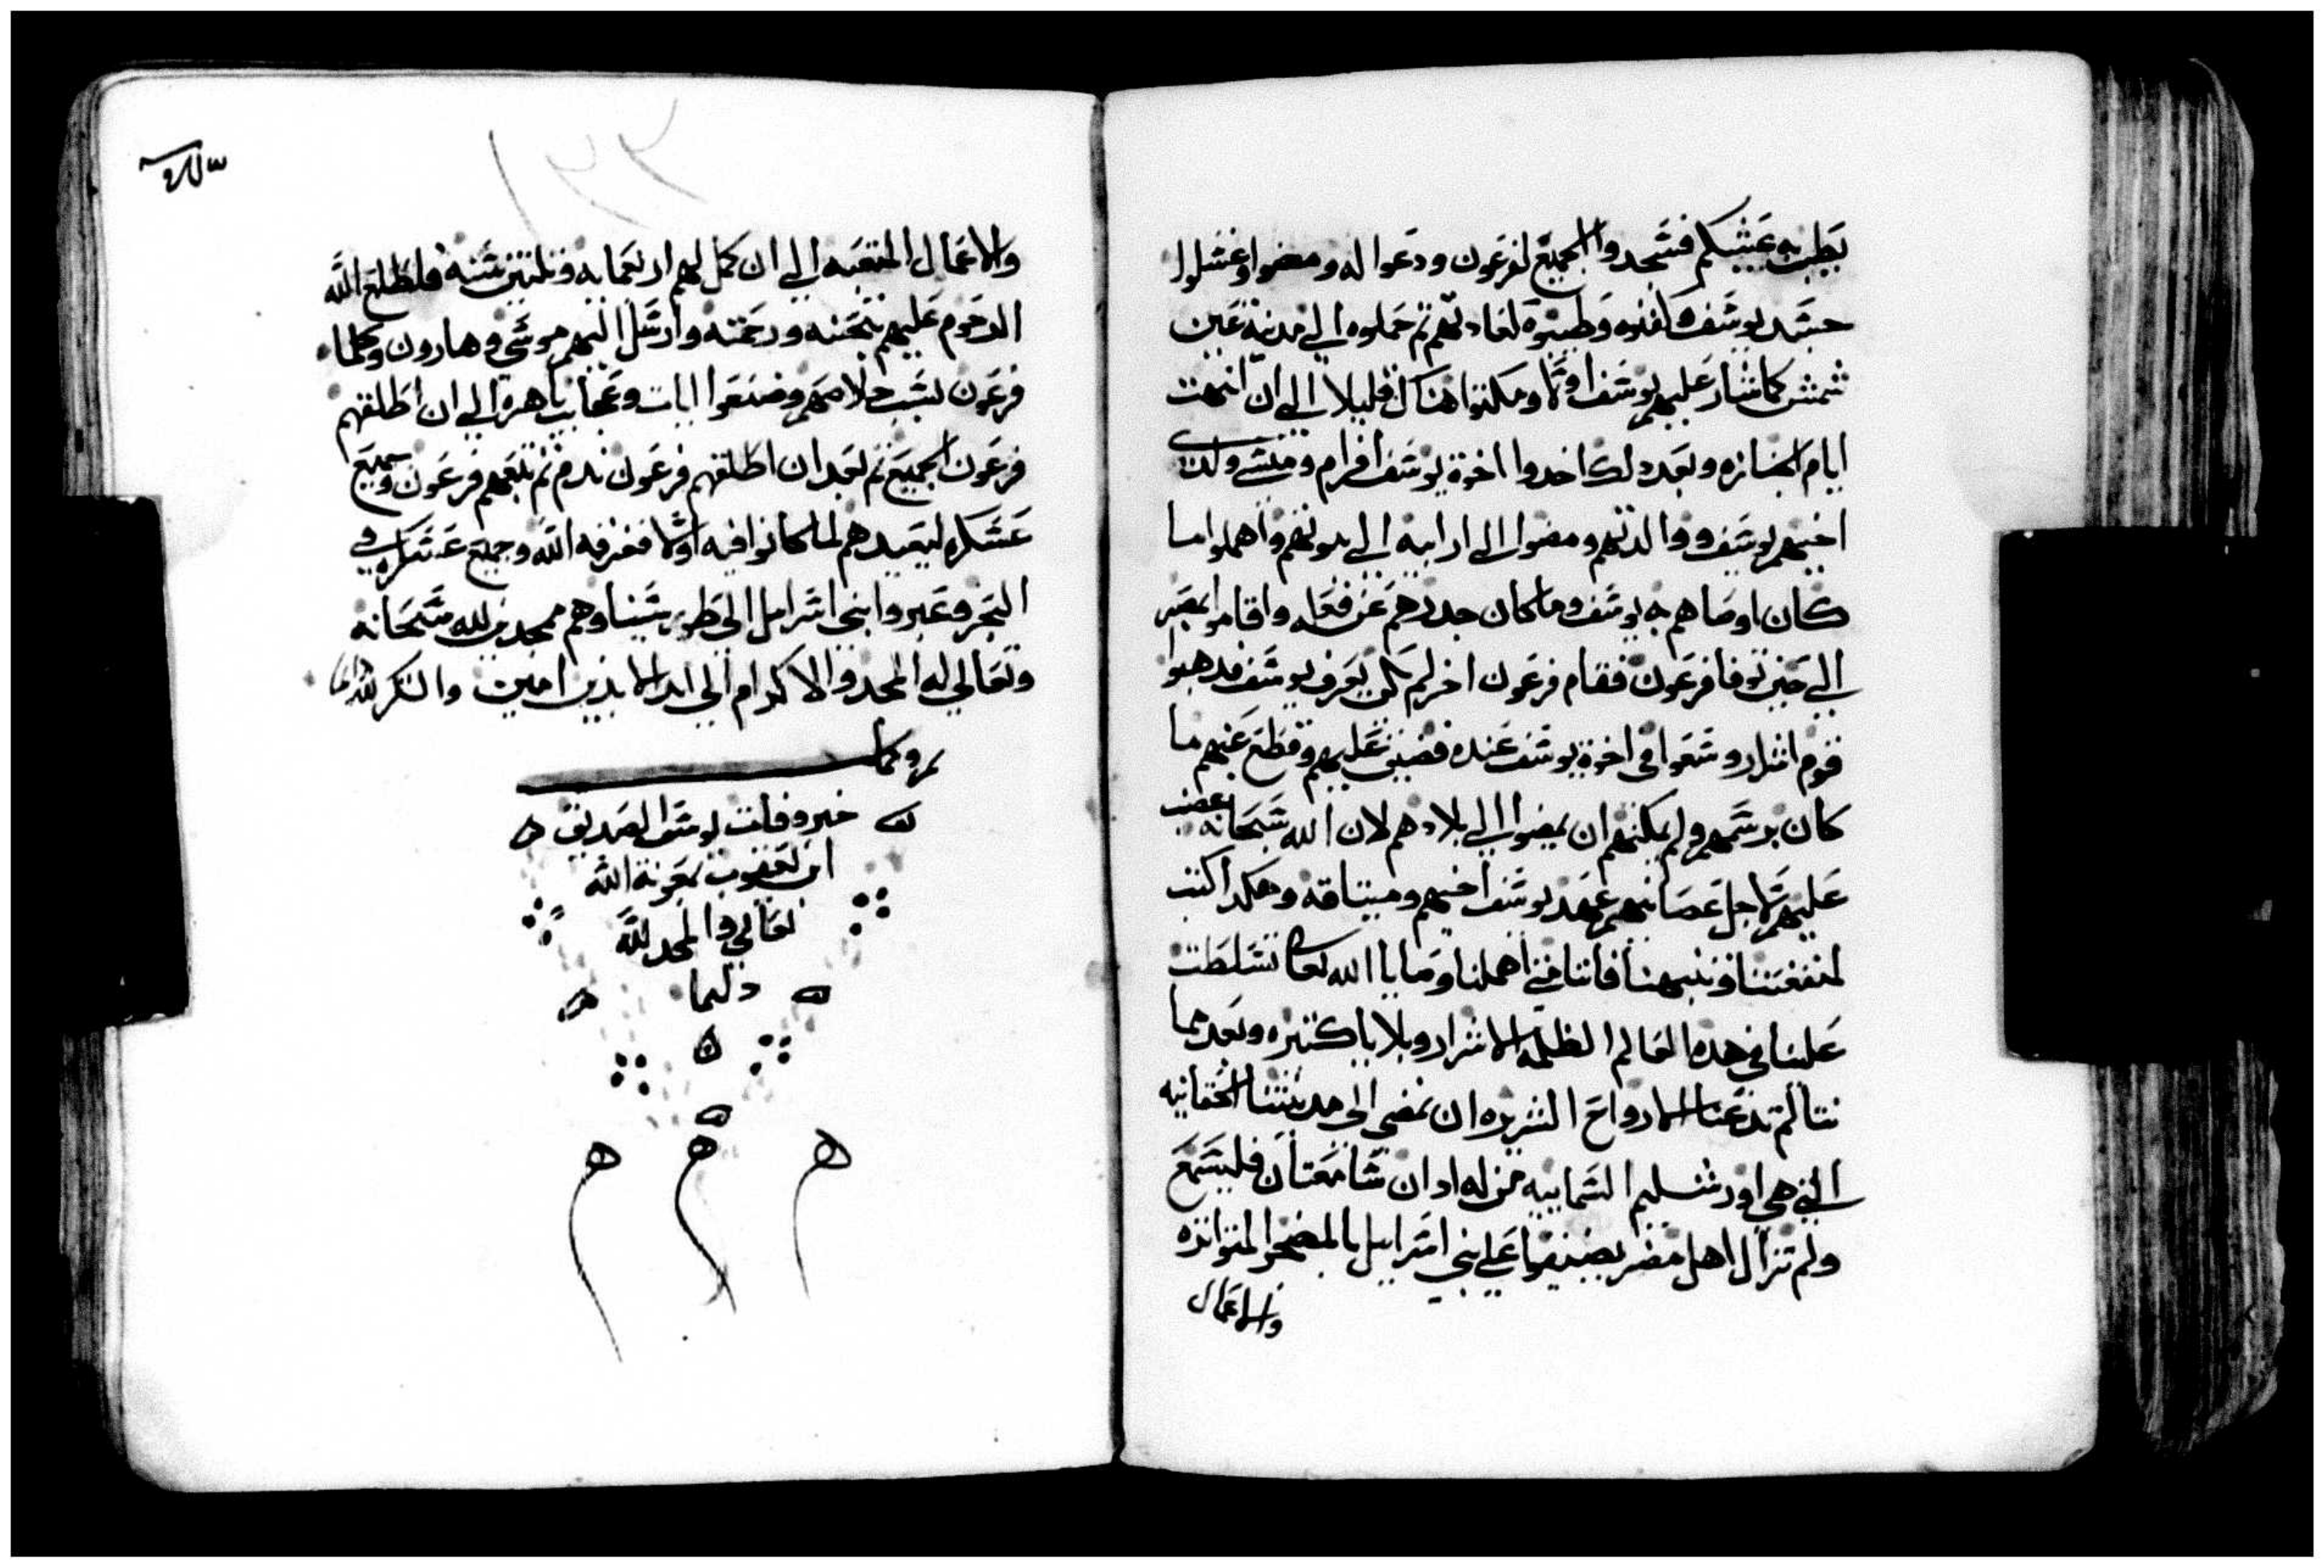 يطيب به عيشكم فسجدوا الجميع لفرعون ودعوا له ومضوا وغسلوا
جسد يوسف وكفنوه وطيبوه كعادتهم ثم حملوه الي مدينة عين
شمش كما شار عليهم يوسف اولا ومكتوا هناك قليلا الي ان انتهت
ايام الجنازه وبعد دلك اخدوا اخوة يوسف افرام ومنشي ولدي
اخيهم يوسف ووالدتهم ومضوا الي ارابيه الي بيوتهم واهملوا ما
كان اوصاهم به يوسف وما كان حدرهم عن فعله واقاموا بمصر
الي حين توفا فرعون فقام فرعون اخر لم يكن يعرف يوسف فدهبوا
قوم اشرار وسعوا في اخوة يوسف عنده فضيق عليهم وقطع عنهم ما
كان برسمهم ولم يمكنهم ان يمضوا الي بلادهم لان الله سبحانه غضب
عليهم لاجل عصيانهم عهد يوسف اخيهم وميتاقه وهكدا كتب
لمنفعتنا وتنبيهنا فاننا متي اهملنا وصايا الله تعالي تسلطت
علينا في هده العالم الظلمه الاشرار وبلايا كتيره وبعدها
نتالم تدعنا الارواح الشريره ان نمضي الي مدينتنا الحقانيه
التي هي اورشليم السمايية من له ادان سامعتان فليسمع
ولم تزال اهل مصر يضيقوا علي بني اسراييل بالمضجوا المتواتره
والاعمال
والاعمال المتعبه الي ان كمل لهم اربعمايه وتلتين سنه فاطلع الله
المرحوم عليهم بتحننه ورحمته وارسل اليهم موسي وهارون وكلما
فرعون بسبب خلاصهم وصنعوا ايات وعجايب باهرة الي ان اطلقهم
فرعون الجميع ثم بعد ان اطلقهم فرعون ندم ثم تبعهم فرعون وجميع
عسكره ليعيدهم لما كانوا فيه اولا فغرقه الله وجميع عسكره في
البحر وعبروا بني اسراييل الي طور سينا وهم ممجدين لله سبحانه
وتعالي له المجد والاكرام الي ابد الابدين امين والشكر لله دايما
خبر وفات يوسف الصديق
ابن يعقوب بمعونة الله
تعالي والمجد لله
دايما